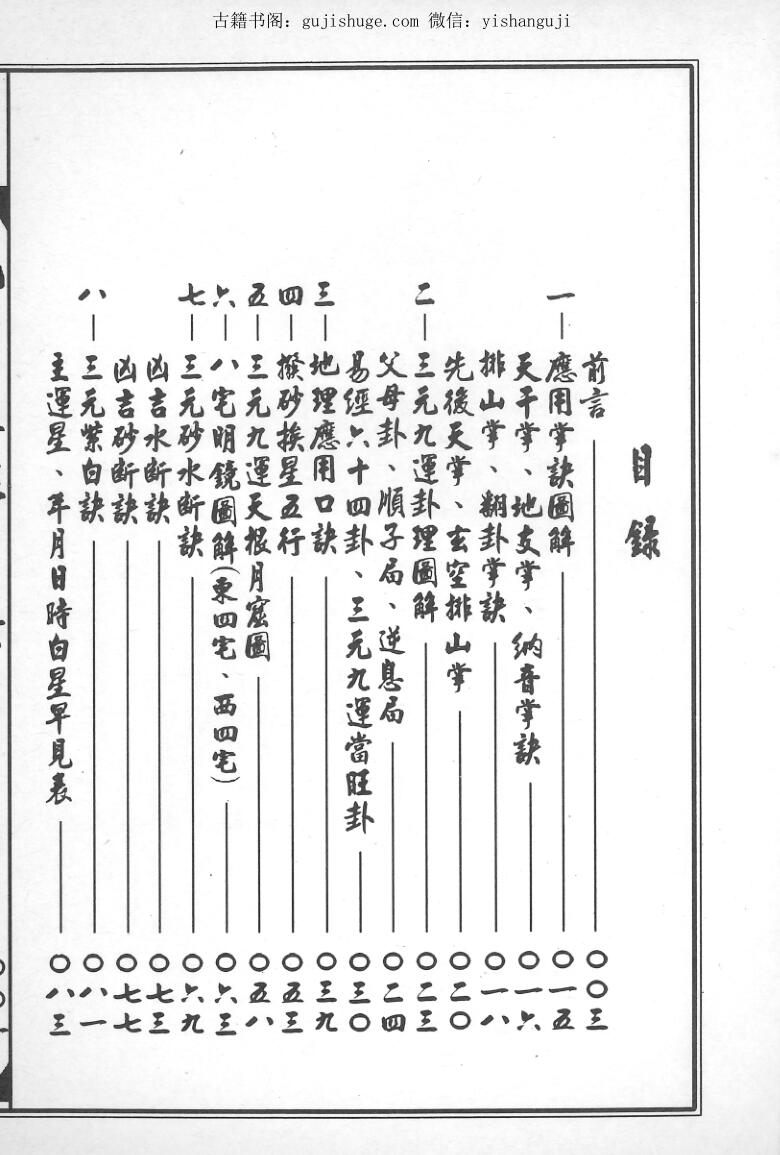 古籍书阁：gujishuge.com 微信：yishanguji
目錄
前言——〇〇三
一—應用掌訣圖解——〇一五
天干掌、地支掌、納音掌訣——〇一六
排山掌、翻卦掌訣——〇一八
先後天掌、玄空排山掌——〇二〇
二—三元九運卦理圖解——〇二三
父母卦、順子局、逆息局——〇二四
易經六十四卦、三元九運當旺卦——〇三〇
三—地理應用口訣——〇三九
四—撥砂挨星五行——〇五三
五—三元九運天根月窟圖——〇五八
六—八宅明鏡圖解(東四宅、西四宅)——〇六三
七—三元砂水断訣——〇六九
凶吉水断訣——〇七三
凶吉砂断訣——〇七七
八—三元紫白訣——〇八一
主運星、年月日時白星早見表——〇八三